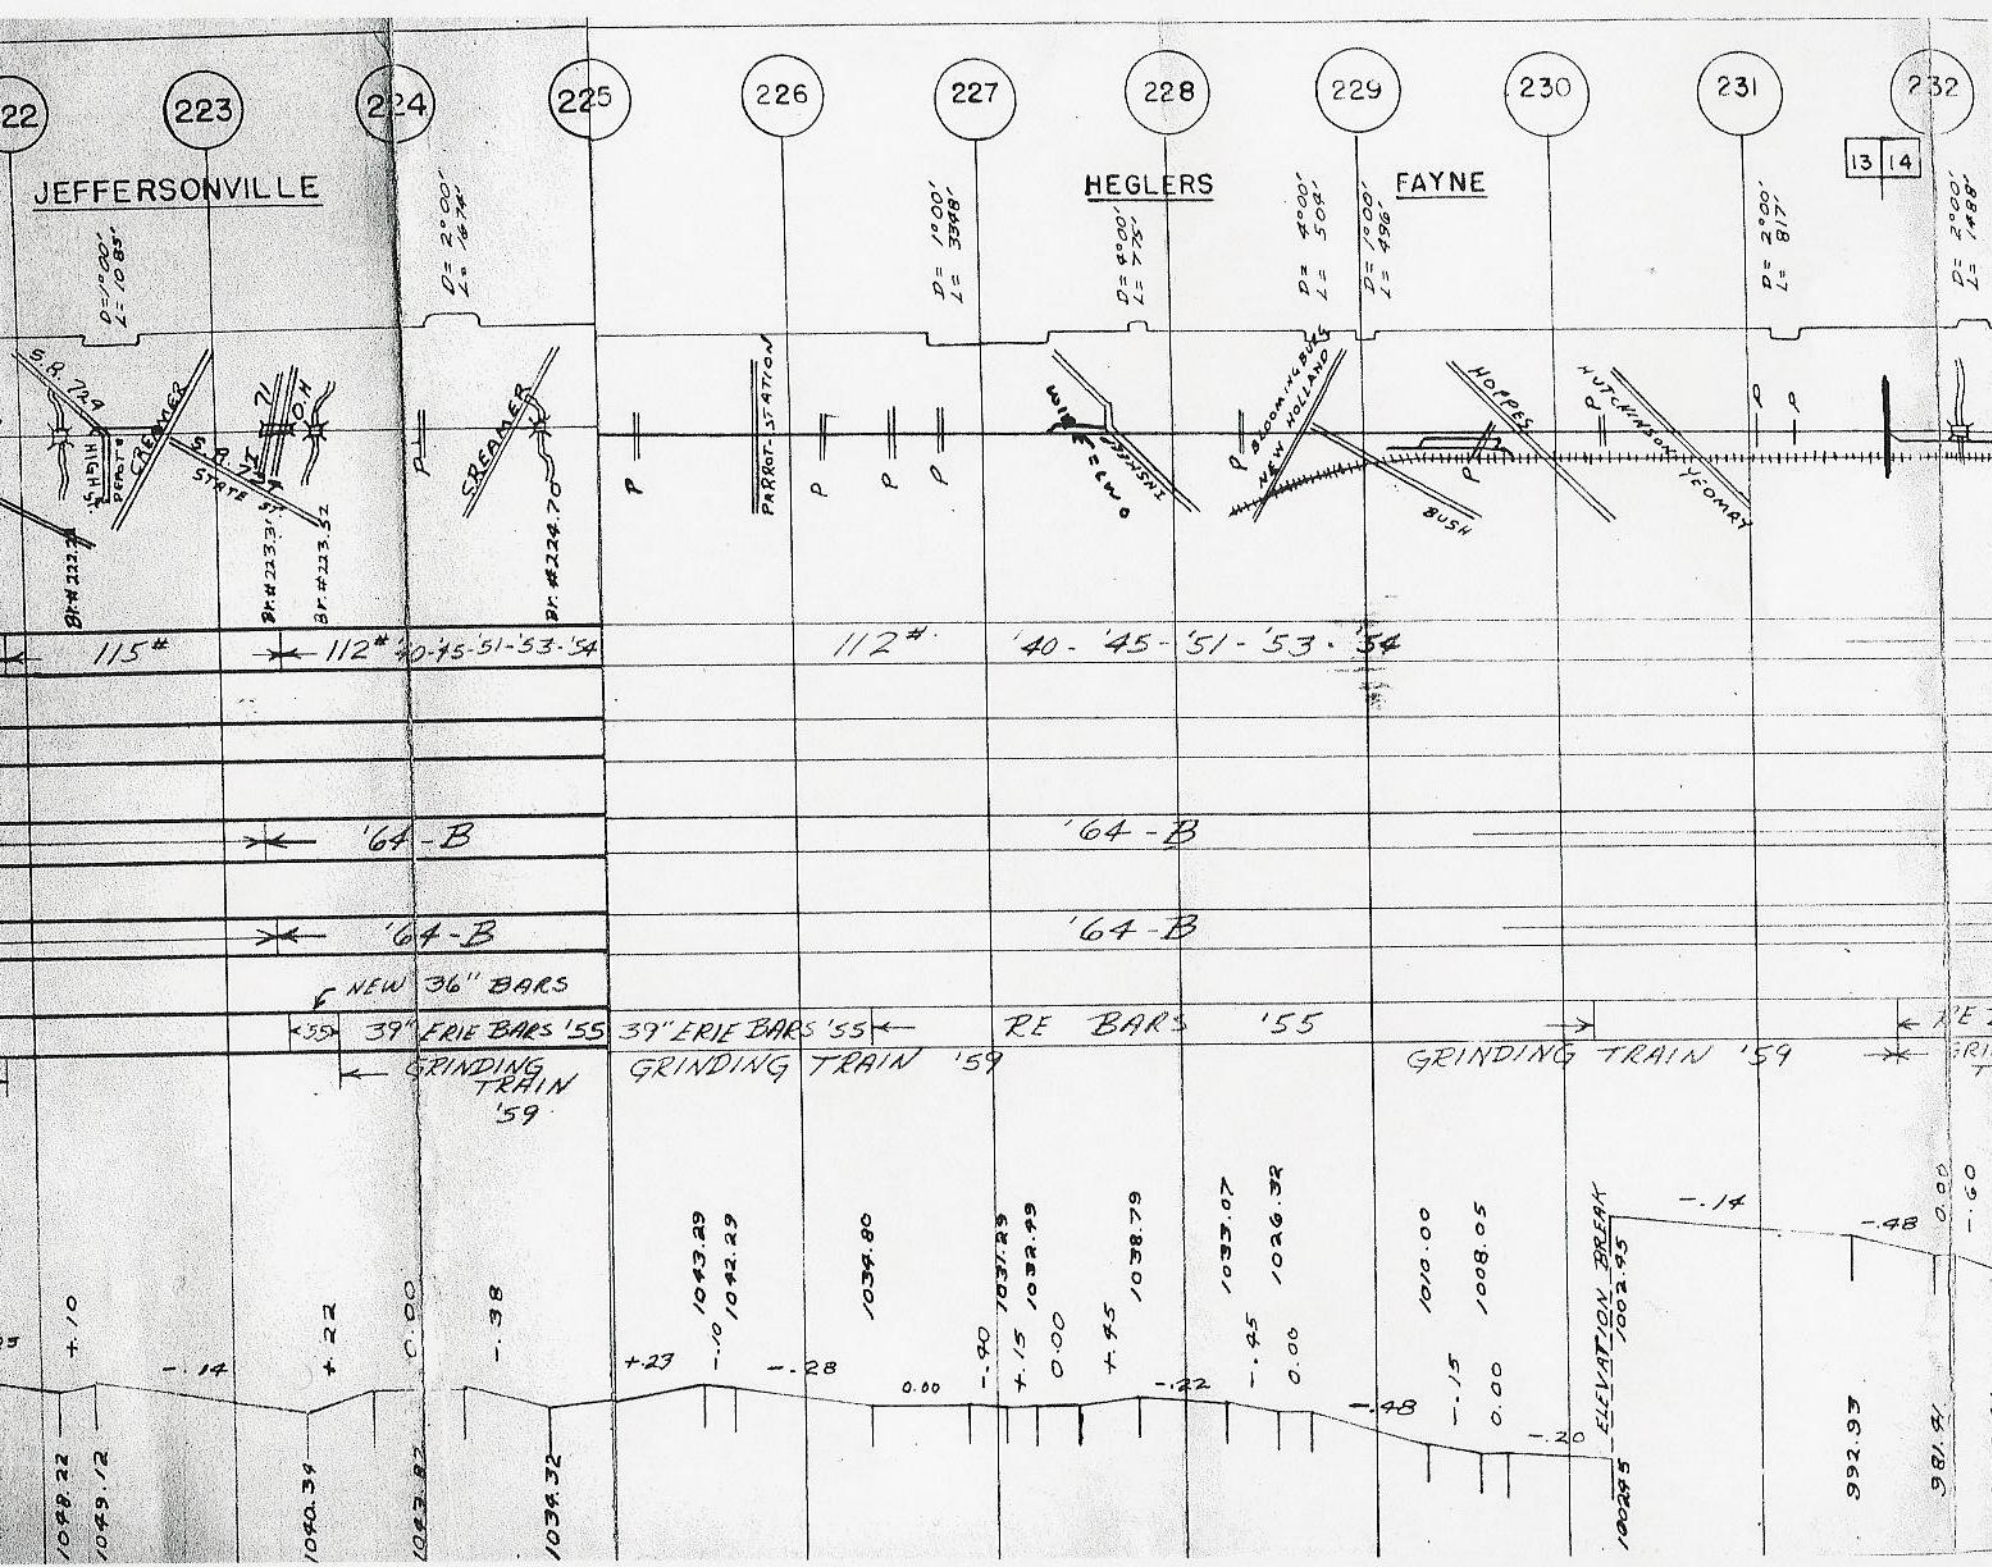 22 223 224 225 226 227 228 229 230 231 232
13 14
JEFFERSONVILLE HEGLERS FAYNE
D=1°00'
L=1085'
D=2°00'
L=1674'
D=1°00'
L=3348'
D=4°00'
L=775'
D=4°00'
L=504'
D=1°00'
L=496'
D=2°00'
L=817'
D=2°00'
L=1488'
S.R. 729
HIGH ST.
CREAMER
S.R. 734
STATE ST
I 71
O.H
P
CREAMER
P
PARROT-STATION
P
P
P
INSKEEP
P
BLOOMINGBURG
NEW HOLLAND
BUSH
P
HOPPES
P
HUTCHINSON YEOMAY
P
P
Br.#223.31
Br.#223.52
Br.#224.70
115# 112# '40-'45-'51-'53-'54 112# '40-'45-'51-'53-'54
'64-B '64-B
'64-B '64-B
NEW 36" BARS
'55 39" ERIE BARS '55 39" ERIE BARS '55 RE BARS '55
GRINDING TRAIN '59 GRINDING TRAIN '59 GRINDING TRAIN '59
+.10
-.14
+.22
0.00
-.38
+.23
-.10
-.28
0.00
-.40
+.15
0.00
+.45
-.22
-.45
0.00
-.48
-.15
0.00
-.20
-.14
-.48
0.00
-.60
1043.29
1042.29
1034.80
1031.29
1032.49
1038.79
1033.07
1026.32
1010.00
1008.05
ELEVATION BREAK
1002.45
1048.22
1049.12
1040.34
1043.82
1034.32
1002.45
992.93
981.41